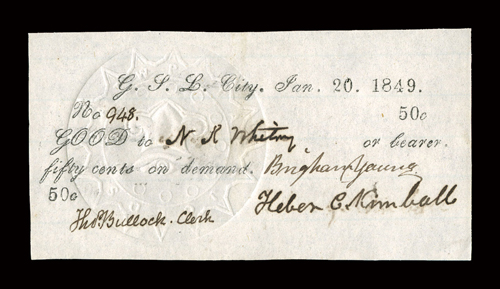 G. S. L. City. Jan. 20. 1849.
No 948. 50c
GOOD to N K Whitney or bearer.
fifty cents on demand. Brigham Young
50c Heber C. Kimball
Thos. Bullock. Clerk